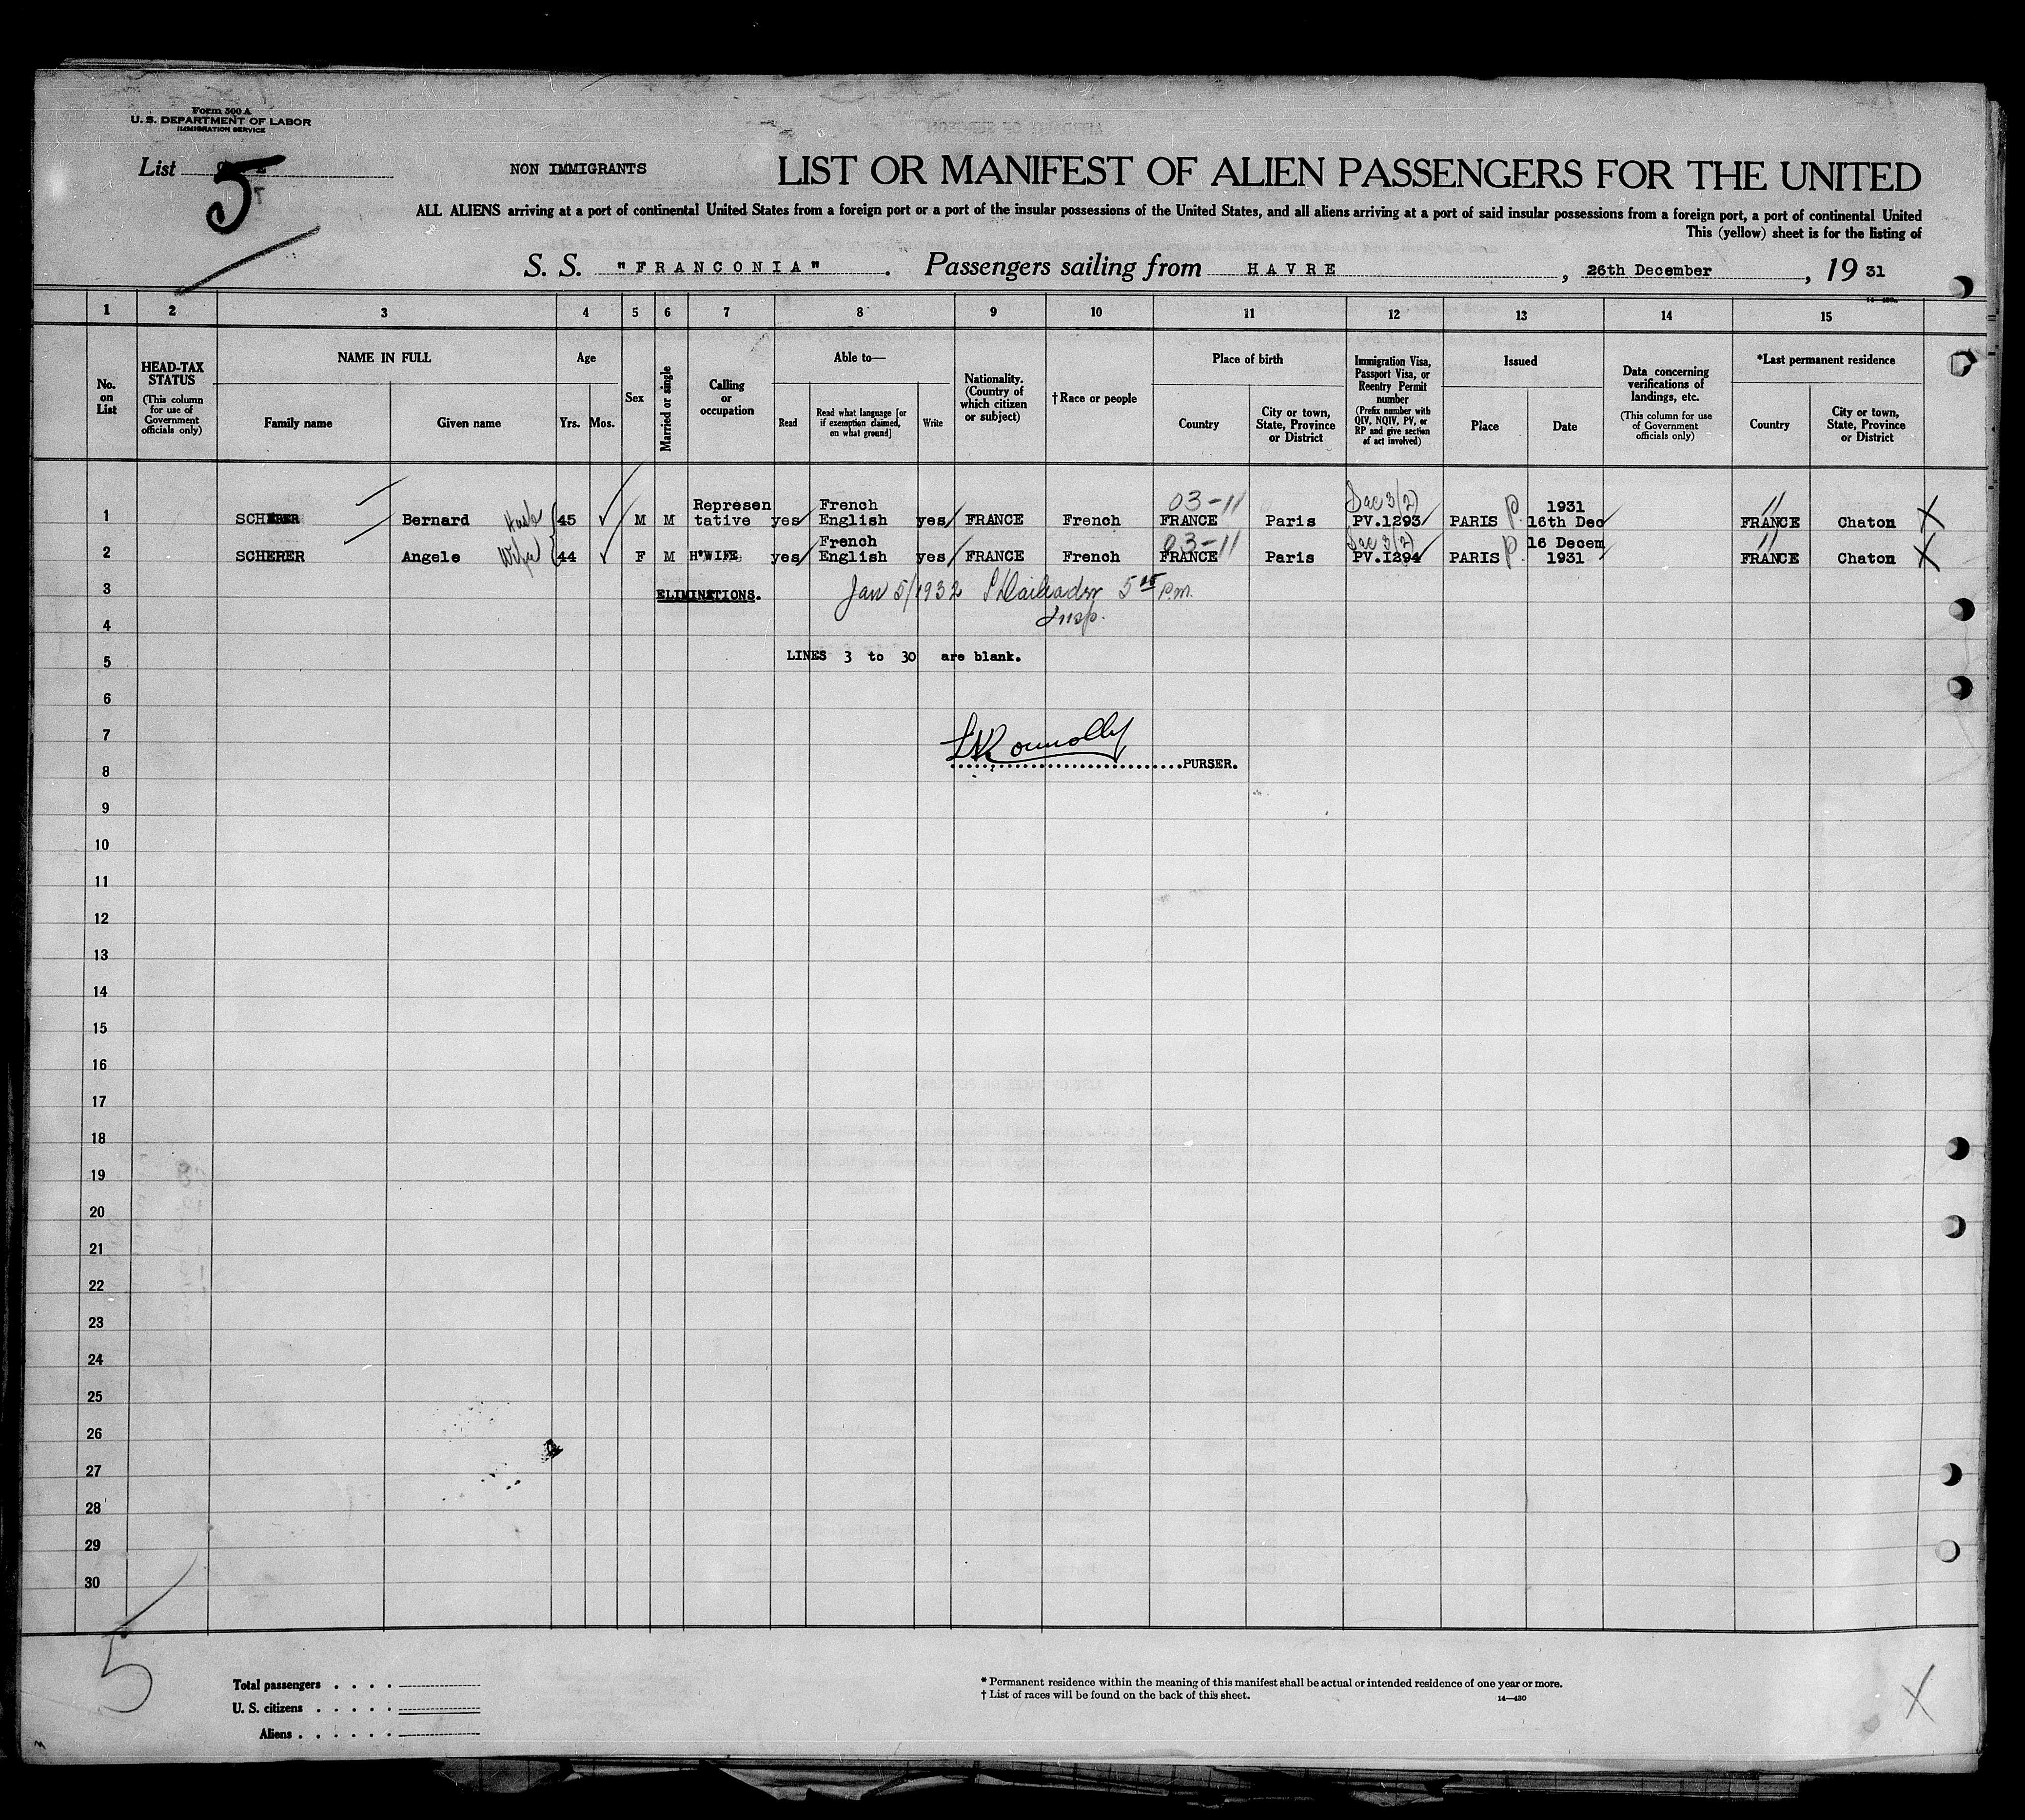 Form 500 A
U. S. DEPARTMENT OF LABOR
IMMIGRATION SERVICE
List 5
NON IMMIGRANTS
LIST OR MANIFEST OF ALIEN PASSENGERS FOR THE UNITED
ALL ALIENS arriving at a port of continental United States from a foreign port or a port of the insular possessions of the United States, and all aliens arriving at a port of said insular possessions from a foreign port, a port of continental United
This (yellow) sheet is for the listing of
S. S. "FRANCONIA". Passengers sailing from HAVRE, 26th December, 19 31
1 2 3 4 5 6 7 8 9 10 11 12 13 14 15
No. on List
HEAD-TAX STATUS
(This column for use of Government officials only)
NAME IN FULL
Family name
Given name
Age
Yrs. Mos.
Sex
Married or single
Calling or occupation
Able to—
Read
Read what language [or if exemption claimed, on what ground]
Write
Nationality. (Country of which citizen or subject)
† Race or people
Place of birth
Country
City or town, State, Province or District
Immigration Visa, Passport Visa, or Reentry Permit number
(Prefix number with QIV, NQIV, PV, or RP and give section of act involved)
Issued
Place
Date
Data concerning verifications of landings, etc.
(This column for use of Government officials only)
*Last permanent residence
Country
City or town, State, Province or District
03-11
1 SCHERER Bernard Husb 45 M M Representative yes French English yes FRANCE French FRANCE Paris Sec 3(2) PV.1293 PARIS P 1931 16th Dec FRANCE Chaton X
03-11
2 SCHERER Angele Wife 44 F M H'WIFE yes French English yes FRANCE French FRANCE Paris Sec 3(2) PV.I294 PARIS P 16 Decem 1931 FRANCE Chaton X
3 ELIMINATIONS. Jan 5/1932 5 15 P.M.
4 Insp.
5 LINES 3 to 30 are blank.
6
7 Connolly
8 PURSER.
9
10
11
12
13
14
15
16
17
18
19
20
21
22
23
24
25
26
27
28
29
30
5
Total passengers
U. S. citizens
Aliens
* Permanent residence within the meaning of this manifest shall be actual or intended residence of one year or more.
† List of races will be found on the back of this sheet.
14—430
X